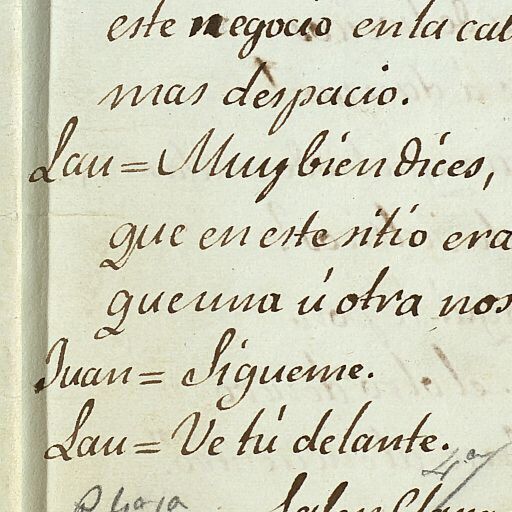 este negocio en la cal
mas despacio.
Lau = Muy bien dices,
que en este sitio era
que una ú otra nos
Juan = Sigueme.
Lau = Ve tú delante.
Salen